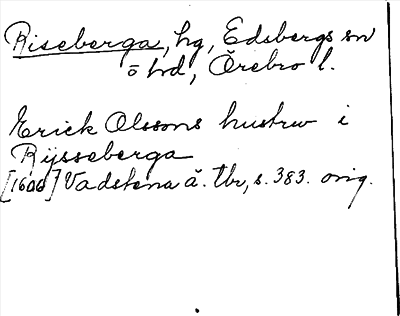 Riseberga, hg, Edsbergs sn
o hd, Örebro l.
Erick Olssons hustrw i
Rijsseberga
[1600] Vadstena ä. tbr, s. 383. orig.